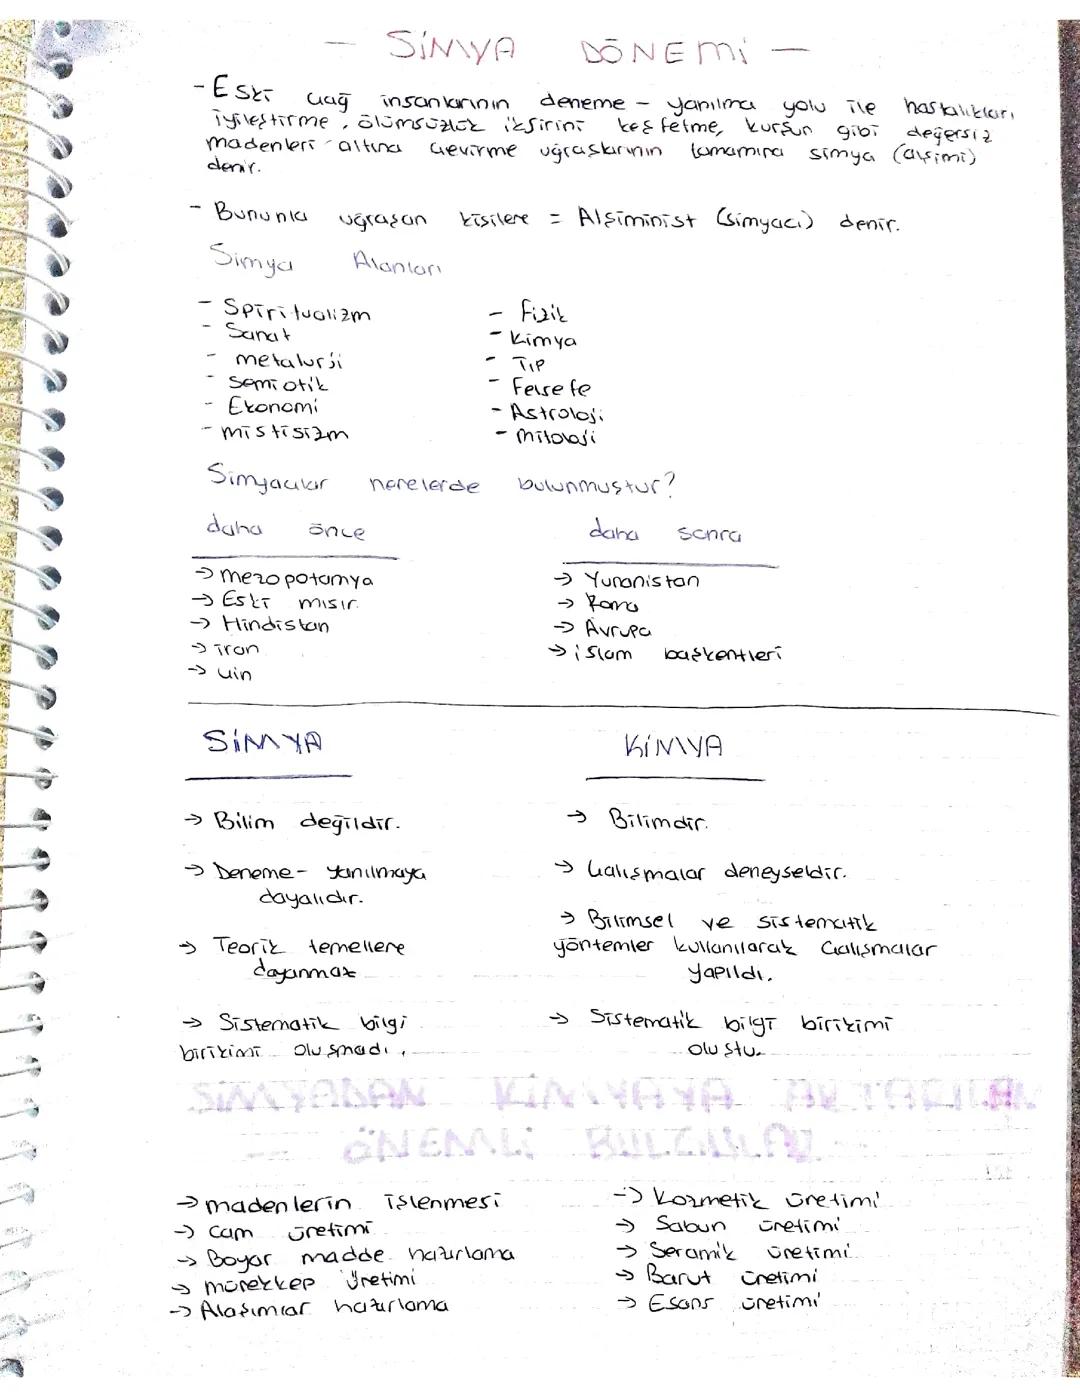 - SİMYA DÖNEMİ -
- Eski çağ insanlarının deneme - yanılma yolu ile hastalıkları
iyileştirme, ölümsüzlük iksirini keşfetme, kurşun gibi değersiz
madenleri altına çevirme uğraşlarının tamamına simya (alşimi)
denir.
- Bununla uğraşan kişilere = Alşiminist (simyacı) denir.
Simya Alanları
- Spiritualizm
- Sanat
- metalurji
- Semiotik
- Ekonomi
- mistisizm
- Fizik
- Kimya
- Tıp
- Felsefe
- Astroloji
- mitoloji
Simyacılar nerelerde bulunmuştur?
daha önce
→ mezopotamya
→ Eski mısır
→ Hindistan
→ iran
→ çin
daha sonra
→ Yunanistan
→ Roma
→ Avrupa
→ islam başkentleri
SİMYA
→ Bilim değildir.
→ Deneme - yanılmaya
dayalıdır.
→ Teorik temellere
dayanmaz
→ Sistematik bilgi
birikimi oluşmadı.
KİMYA
→ Bilimdir.
→ Çalışmalar deneyseldir.
→ Bilimsel ve sistematik
yöntemler kullanılarak çalışmalar
yapıldı.
→ Sistematik bilgi birikimi
oluştu.
SİMYADAN KİMYAYA AKTARILAN
-- ÖNEMLİ BULGULAR --
→ madenlerin işlenmesi
→ cam üretimi
→ Boyar madde hazırlama
→ mürekkep üretimi
→ Alaşımlar hazırlama
→ Kozmetik üretimi
→ Sabun üretimi
→ Seramik üretimi
→ Barut üretimi
→ Esans üretimi